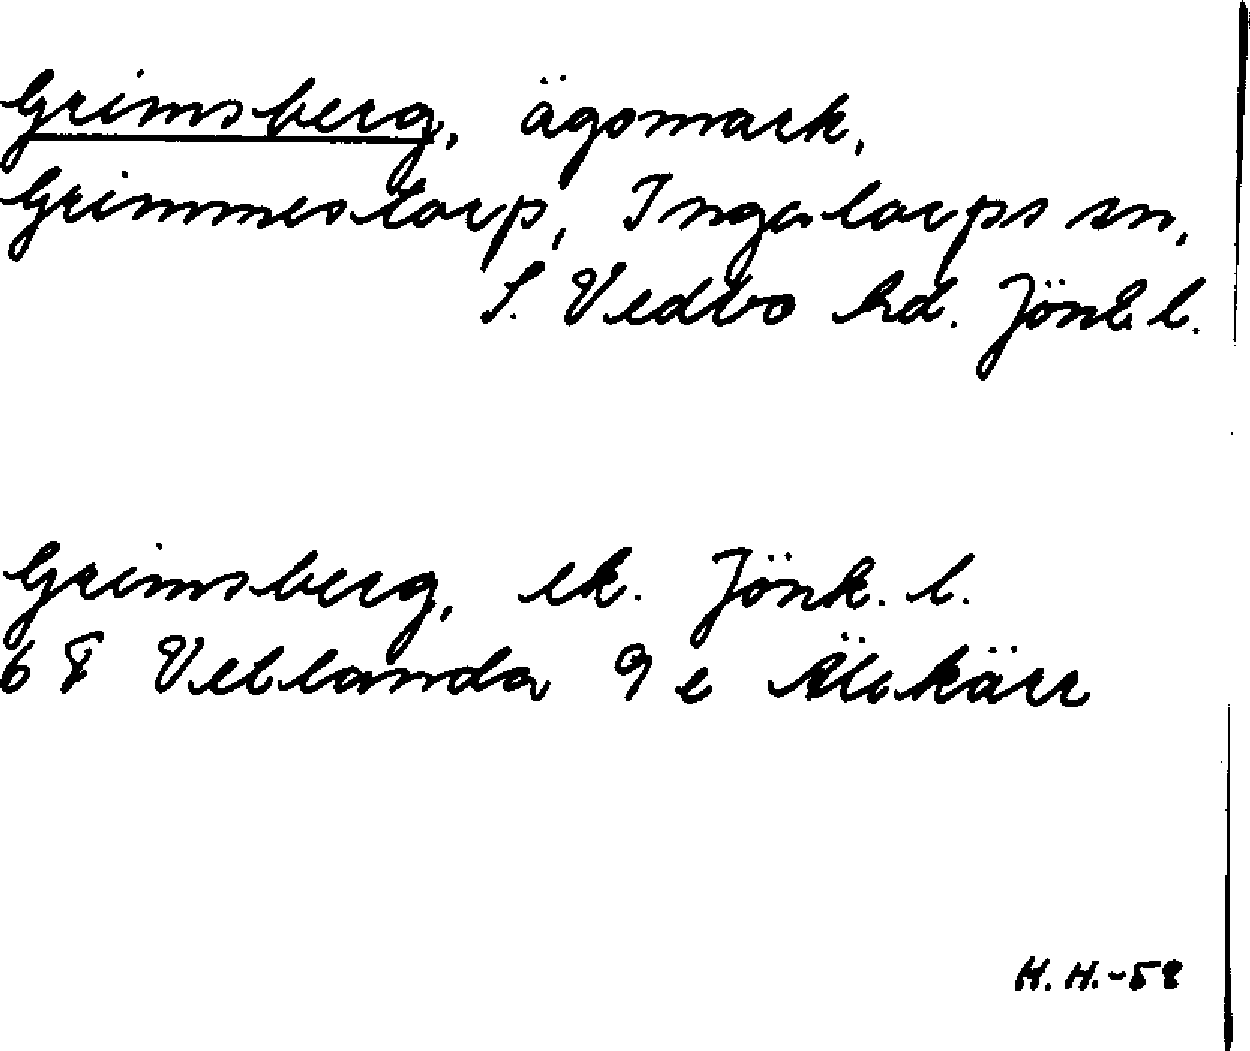 Grimsberg, ägomark,
Grimmestorp, Ingatorps sn,
S. Vedbo hd. Jönk. l.
Grimsberg, ek. Jönk. l.
6 F Vetlanda 9 e Älekärr
H. H. -58